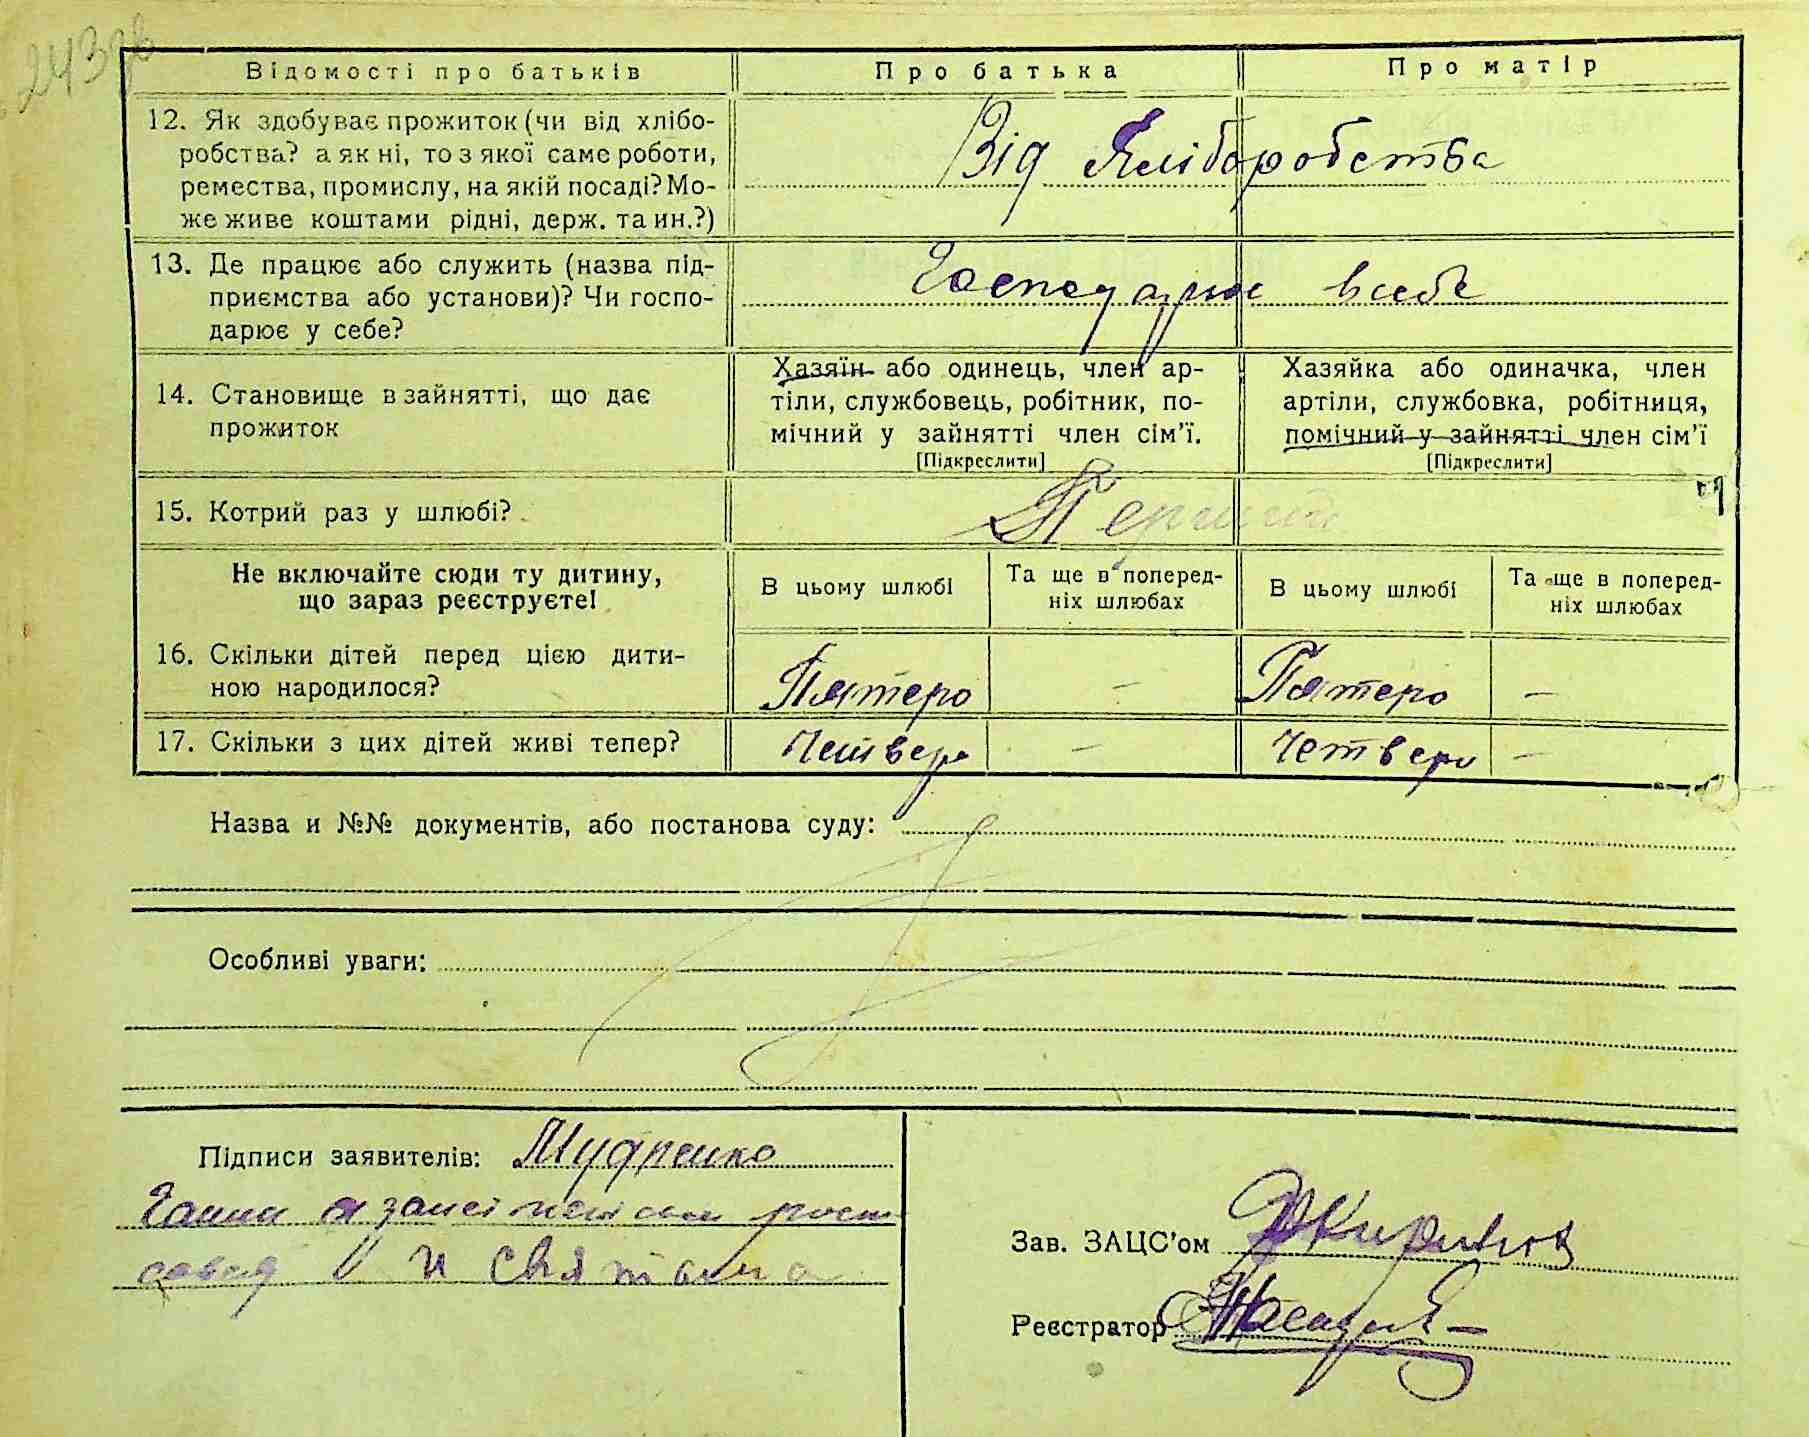 243зв
Відомості про батьків
Про батька
Про матір
12. Як здобуває прожиток (чи від хлібо-
робства? а як ні, то з якої саме роботи,
ремества, промислу, на якій посаді? Мо-
же живе коштами рідні, держ. та ин.?)
Від Хліборобства
13. Де працює або служить (назва під-
приємства або установи)? Чи госпо-
дарює у себе?
Господарює в себе
14. Становище в зайнятті, що дає
прожиток
Хазяїн або одинець, член ар-
тіли, службовець, робітник, по-
мічний у зайнятті член сім'ї.
[Підкреслити]
Хазяйка або одиначка, член
артіли, службовка, робітниця,
помічний у зайнятті член сім'ї
[Підкреслити]
15. Котрий раз у шлюбі?
Перший
Не включайте сюди ту дитину,
що зараз реєструєте!
В цьому шлюбі
Та ще в поперед-
ніх шлюбах
В цьому шлюбі
Та ще в поперед-
ніх шлюбах
16. Скільки дітей перед цією дити-
ною народилося?
Пятеро
–
Пятеро
–
17. Скільки з цих дітей живі тепер?
Четверо
–
Четверо
–
Назва и №№ документів, або постанова суду:
Особливі уваги:
Підписи заявителів: Мудренко
Ганни а
Зав. ЗАЦС'ом
Реєстратор